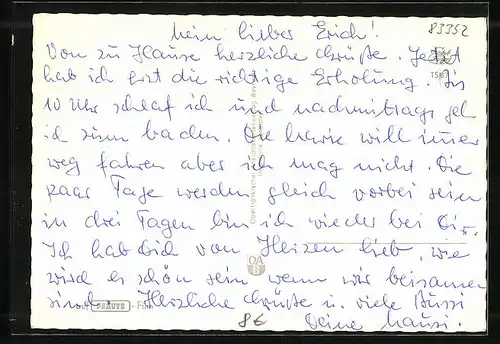 mein lieber Erich!
83352
Von zu Hause herzliche Grüße. Jetzt
hab ich erst die richtige Erholung. Bis
10 Uhr schlaf ich und nachmittags geh
ich zum baden. Die will immer
weg fahren aber ich mag nicht. Die
paar Tage werden gleich vorbei sein
in drei Tagen bin ich wieder bei Dir.
Ich hab Dich von Herzen lieb, wie
wird es schön sein wenn wir beisamen
sind. Herzliche Grüsse u. viele Bussi
Deine Mausi.
8€
PERUTZ - Film